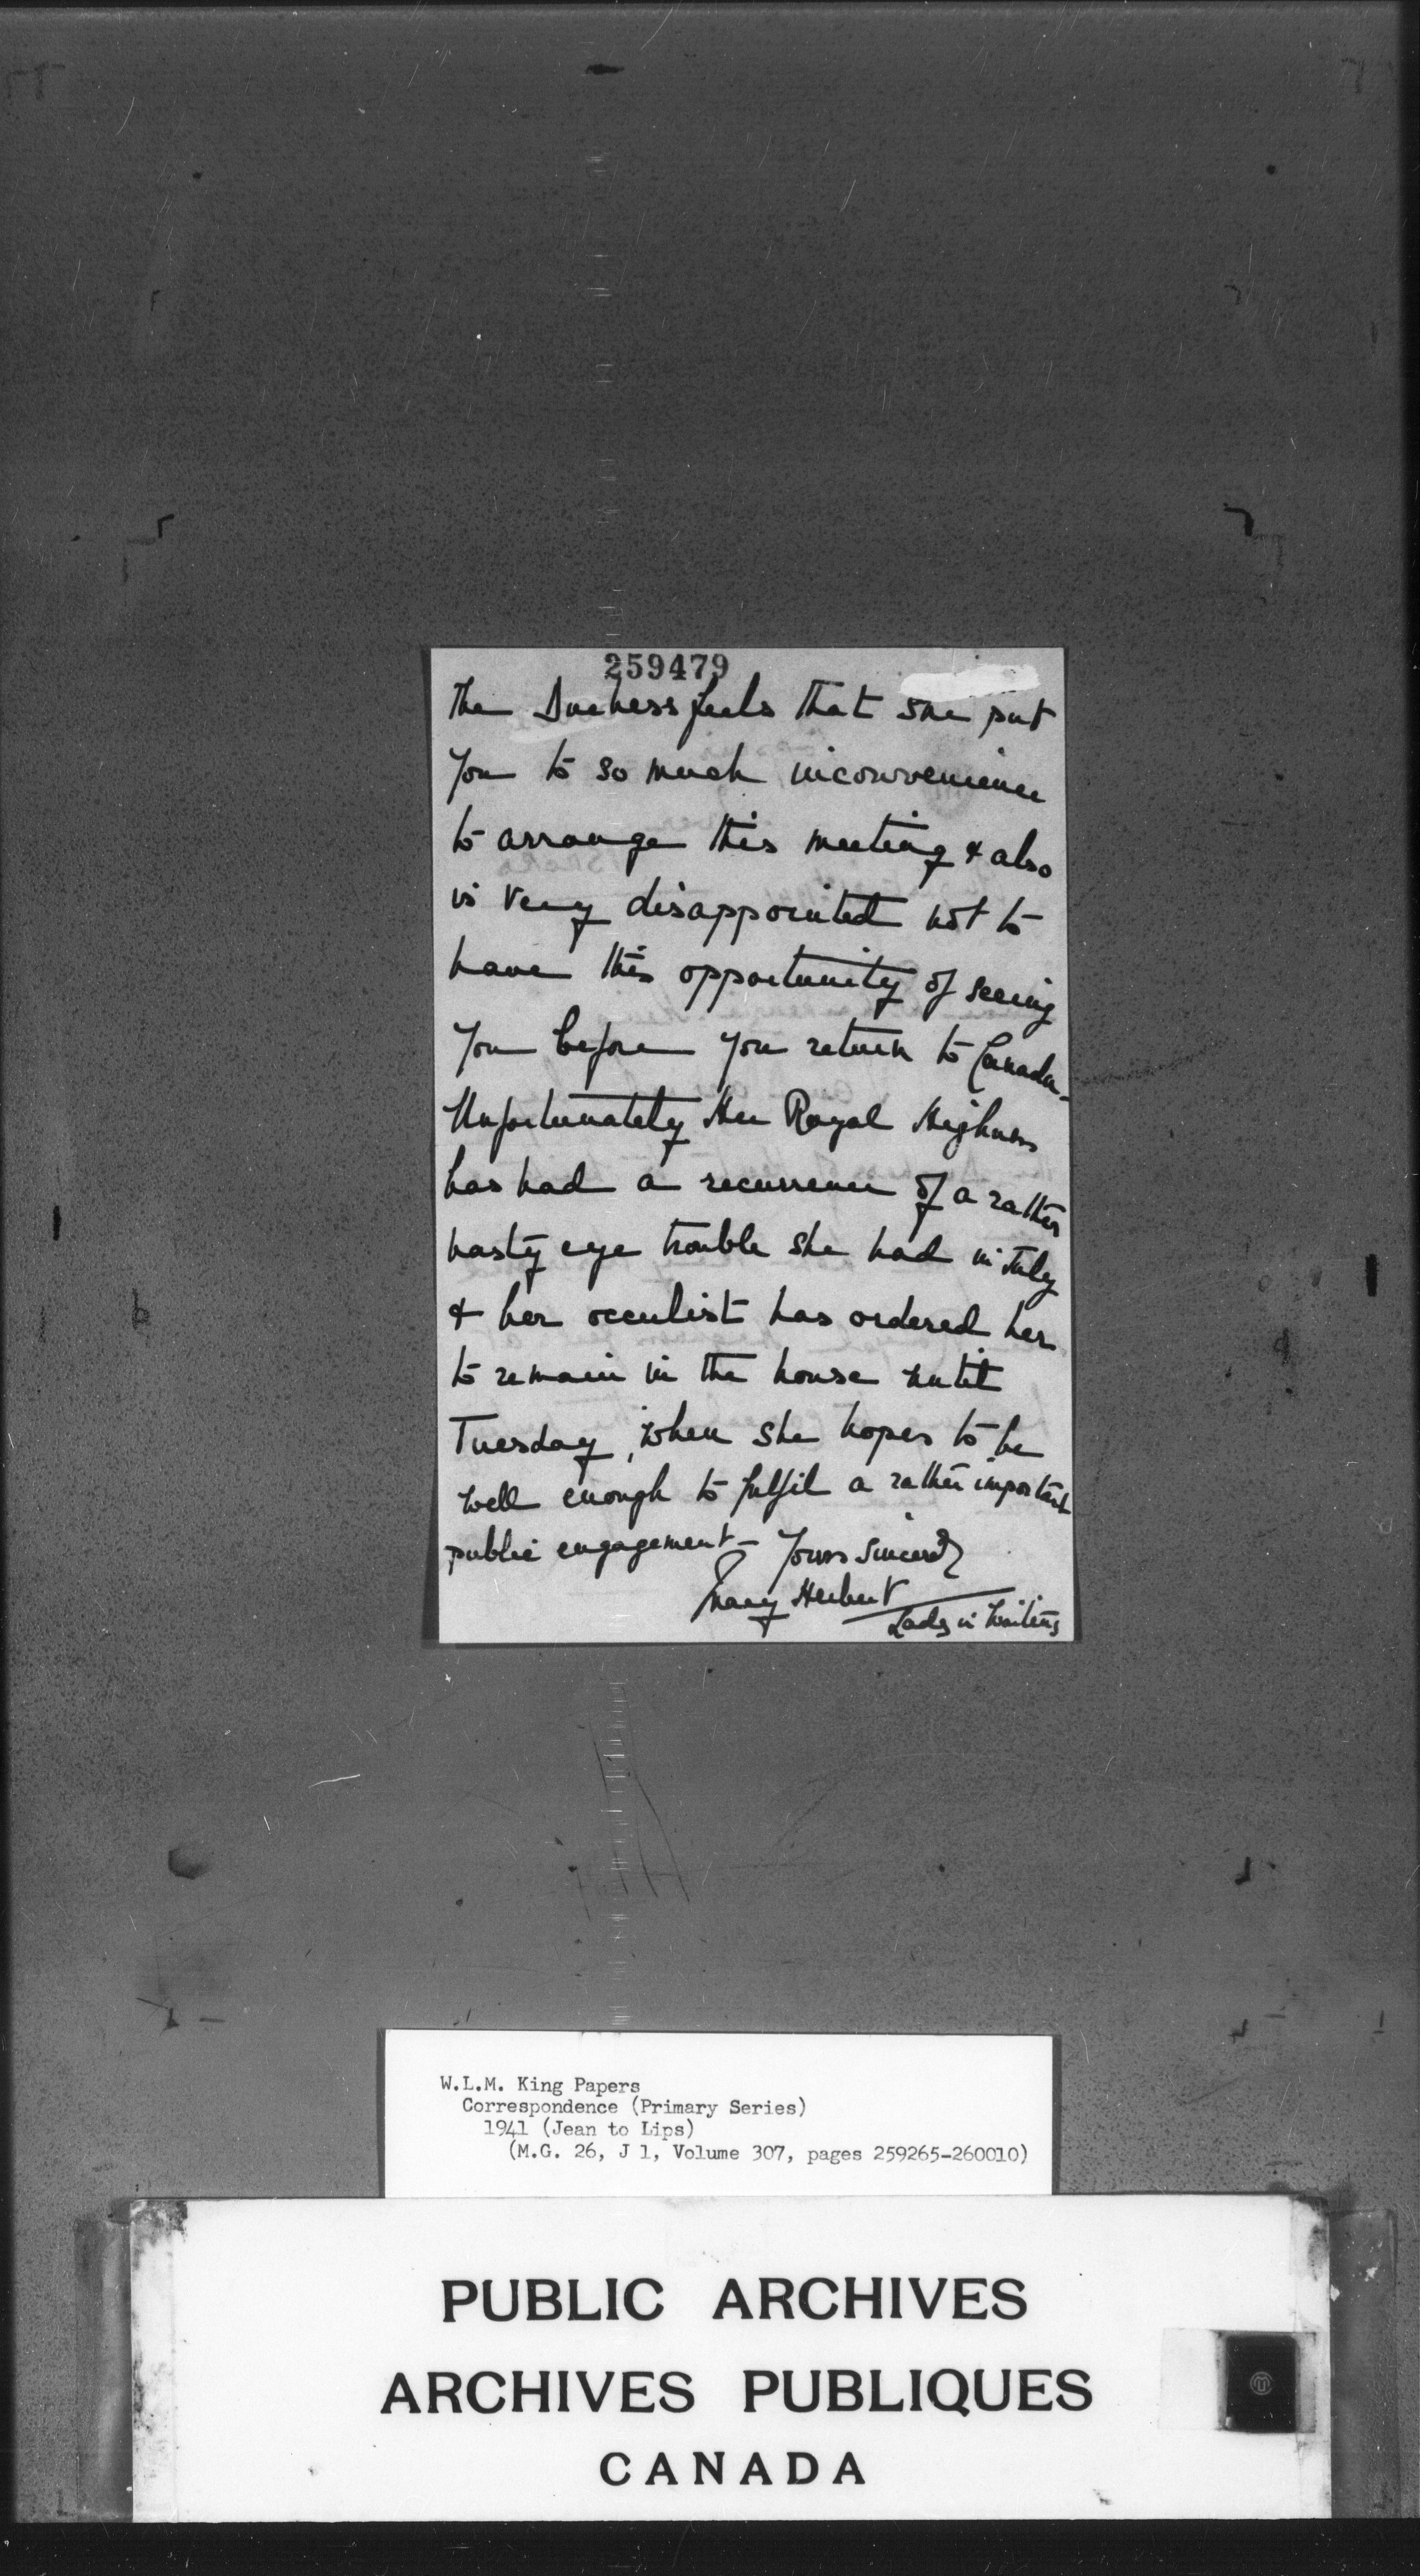 259479
The Duchess feels that she put
you to so much inconvenience
to arrange this meeting & also
is very disappointed not to
have this opportunity of seeing
you before you return to Canada-
Unfortunately Her Royal Highness
has had a recurrence of a rather
nasty eye trouble she had in July
& her occulist has ordered her
to remain in the house until
Tuesday, when she hopes to be
well enough to fulfil a rather important
public engagement - Yours sincerely
Mary Herbert
Lady in Waiting
W.L.M. King Papers
Correspondence (Primary Series)
1941 (Jean to Lips)
(M.G. 26, J 1, Volume 307, pages 259265-260010)
PUBLIC ARCHIVES
ARCHIVES PUBLIQUES
CANADA